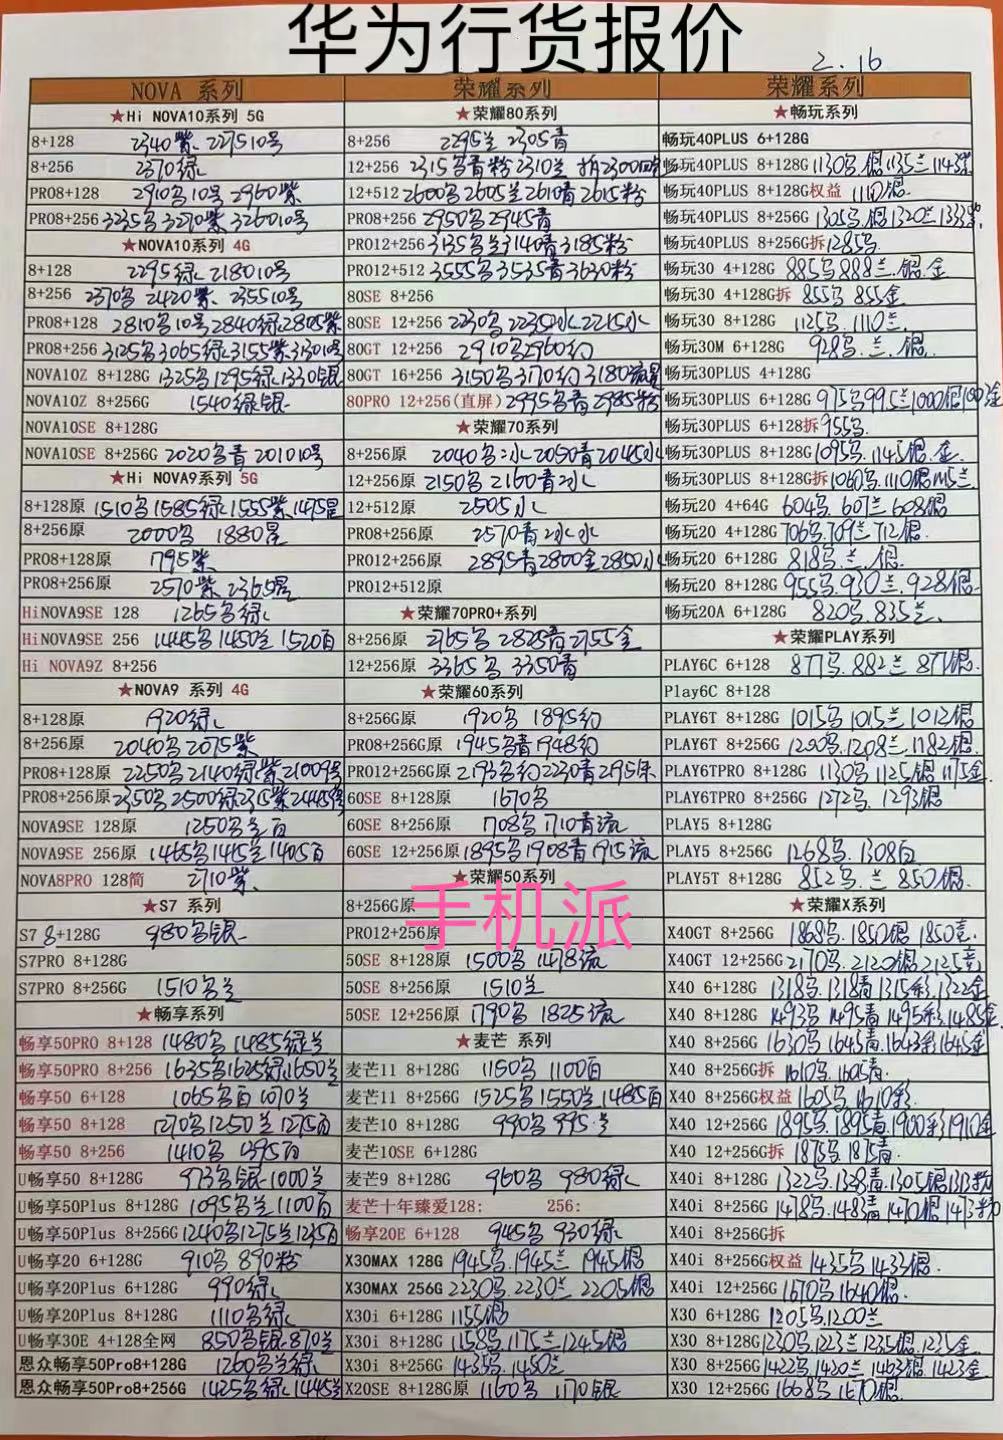 华为行货报价
2.16
NOVA 系列
★Hi NOVA10系列 5G
8+128 2340紫、2275 10号
8+256 2370绿
PRO8+128 2910多10号 2960紫
PRO8+256 3235多3270紫 3260 10号
★NOVA10系列 4G
8+128 2295绿 2180 10号
8+256 2370多 2420紫、2355 10号
PRO8+128 2810多10号2840绿2805紫
PRO8+256 3125多3065绿3155紫3130 10号
NOVA10Z 8+128G 1325多1295绿1330银
NOVA10Z 8+256G 1540绿银
NOVA10SE 8+128G
NOVA10SE 8+256G 2020多青 2010 10号
★Hi NOVA9系列 5G
8+128原 1510多1585绿1555紫1475星
8+256原 2000多 1880星
PRO8+128原 1795紫
PRO8+256原 2570紫 2365星
HiNOVA9SE 128 1265多绿
HiNOVA9SE 256 1445多1450兰1520百
Hi NOVA9Z 8+256
★NOVA9 系列 4G
8+128原 1920绿
8+256原 2040多2075紫
PRO8+128原 2250多2140绿紫2100 9号
PRO8+256原 2350多2500绿
NOVA9SE 128原 1250多兰百
NOVA9SE 256原 1465多1415兰1405百
NOVA8PRO 128简 2710紫、
★S7 系列
S7 8+128G 980多银
S7PRO 8+128G
S7PRO 8+256G 1510多兰
★畅享系列
畅享50PRO 8+128 1480多1485绿兰
畅享50PRO 8+256 1635多1625绿1650兰
畅享50 6+128 1065多百1070兰
畅享50 8+128 1270多1250兰1275百
畅享50 8+256 1410多 1395百
U畅享50 8+128G 973多银1000兰
U畅享50Plus 8+128G 1095多兰1100百
U畅享50Plus 8+256G 1240多1275兰1245百
U畅享20 6+128G 910多 890粉
U畅享20Plus 6+128G 990绿
U畅享20Plus 8+128G 1110多绿
U畅享30E 4+128全网 850多银870兰
恩众畅享50Pro8+128G 1260多兰绿
恩众畅享50Pro8+256G 1425多绿1445兰
荣耀系列
★荣耀80系列
8+256 2295兰 2305青
12+256 2315多青粉2310兰 拆2300
12+512 2600多2605兰2610青2615粉
PRO8+256 2950多2945青
PRO12+256 3135多兰3140青3185粉
PRO12+512 3555多3535青3630粉
80SE 8+256
80SE 12+256 2230多2235冰2215水
80GT 12+256 2910多2960幻
80GT 16+256 3150多3170幻3180流星
80PRO 12+256(直屏) 2995多青2985粉
★荣耀70系列
8+256原 2040多冰2050青2045水
12+256原 2150多2160青冰
12+512原 2505水
PRO8+256原 2570青冰水
PRO12+256原 2895青2800金2850水
PRO12+512原
★荣耀70PRO+系列
8+256原 2765多2825青2755金
12+256原 3365多 3350青
★荣耀60系列
8+256G原 1920多 1895幻
PRO8+256G原 1945多青1948幻
PRO12+256G原 2193多幻2230青2195
60SE 8+128原 1670多
60SE 8+256原 1708多1710青流
60SE 12+256原 1895多1908青1915流
★荣耀50系列
手机派
8+256G原
PRO12+256原
50SE 8+128原 1500多 1478流
50SE 8+256原 1510兰
50SE 12+256原 1790多 1825流
★麦芒 系列
麦芒11 8+128G 1150多 1100百
麦芒11 8+256G 1525多1550兰1485百
麦芒10 8+128G 990多 995兰
麦芒10SE 6+128G
麦芒9 8+128G 960多 980绿
麦芒十年臻爱128: 256:
畅享20E 6+128 945多 930绿
X30MAX 128G 1945多.1945兰 1945银
X30MAX 256G 2230多.2230兰 2205银
X30i 6+128G 1155银
X30i 8+128G 1158多.1175兰1245银
X30i 8+256G 1435多.1450兰
X20SE 8+128G原 1160多 1170银
荣耀系列
★畅玩系列
畅玩40PLUS 6+128G
畅玩40PLUS 8+128G 1130多.银1135兰1143紫
畅玩40PLUS 8+128G权益 1110银
畅玩40PLUS 8+256G 1305多.银1320兰1333紫
畅玩40PLUS 8+256G拆 1285多
畅玩30 4+128G 885多888兰.银.金
畅玩30 4+128G拆 855多 855金
畅玩30 8+128G 1125多.1110兰.
畅玩30M 6+128G 928多.兰.银.
畅玩30PLUS 4+128G
畅玩30PLUS 6+128G 975多995兰1000银
畅玩30PLUS 6+128拆 955多.
畅玩30PLUS 8+128G 1095多.1145银.金
畅玩30PLUS 8+128G拆 1060多.1110银1115兰
畅玩20 4+64G 604多.607兰608银
畅玩20 4+128G 706多.709兰712银.
畅玩20 6+128G 818多.兰.银.
畅玩20 8+128G 955多.930兰.928银
畅玩20A 6+128G 820多.835兰.
★荣耀PLAY系列
PLAY6C 6+128 877多.882兰871银.
Play6C 8+128
PLAY6T 8+128G 1015多1015兰1012银
PLAY6T 8+256G 1200多.1208兰.1182银.
PLAY6TPRO 8+128G 1130多1125银1175金
PLAY6TPRO 8+256G 1272多.1293银
PLAY5 8+128G
PLAY5 8+256G 1268多.1308白
PLAY5T 8+128G 852多.兰 850银.
★荣耀X系列
X40GT 8+256G 1868多.1850银1850竞.
X40GT 12+256G 2170多.2120银2125竞
X40 6+128G 1318多.1318青1315彩.1322金
X40 8+128G 1493多1495青1495彩.1485金
X40 8+256G 1630多1645青.1643彩1645金
X40 8+256G拆 1610多.1605青.
X40 8+256G权益 1605多.1610彩.
X40 12+256G 1895多.1895青.1900彩1910金
X40 12+256G拆 1875多1875青.
X40i 8+128G 1322多.1328青.1305银1313粉
X40i 8+256G 1478多.1483青1470银1473粉
X40i 8+256G拆
X40i 8+256G权益 1435多1433银.
X40i 12+256G 1670多1640银.
X30 6+128G 1205多.1200兰
X30 8+128G 1230多.1223兰1235银.1235金
X30 8+256G 1422多1420兰1463银.1423金
X30 12+256G 1668多.1670银